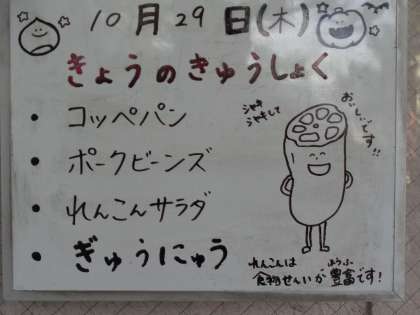 10月29日(木)
きょうのきゅうしょく
・コッペパン
・ポークビーンズ
・れんこんサラダ
・ぎゅうにゅう
シャキ
シャキして
おいしいです!!
れんこんは
ようふ
食物せんいが豊富です!